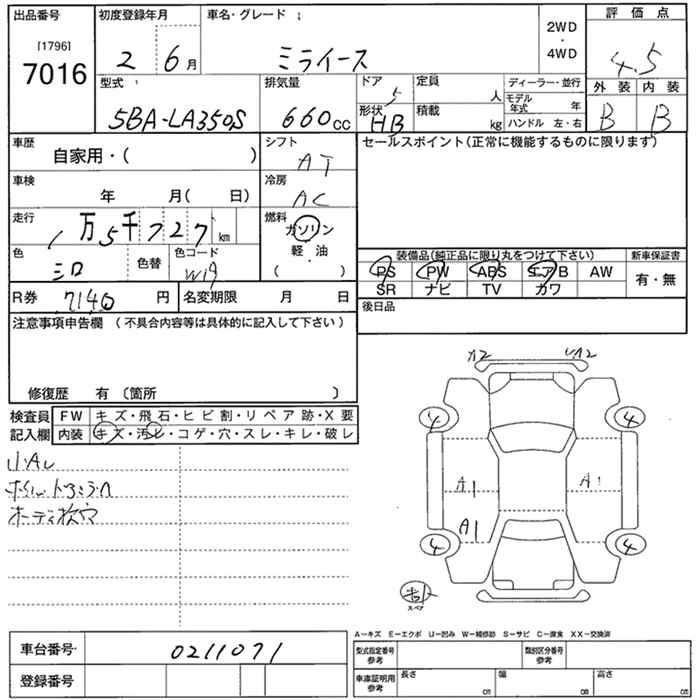 出品番号 初度登録年月 車名・グレード 2WD・4WD 評価点
[1796] 7016 2 6月 ミライース 4.5
型式 排気量 ドア 5 定員 人 ディーラー・並行 外装 内装
5BA-LA350S 660cc 形状 HB 積載 kg モデル年式 年 B B
ハンドル 左・右
車歴 自家用・( ) シフト AT セールスポイント(正常に機能するものに限ります)
車検 年 月( 日) 冷房 AC
走行 1万5千727km 燃料 ガソリン・軽・油 ( )
色 シロ 色替 色コード W19
装備品(純正品に限り丸をつけて下さい) 新車保証書
PS PW ABS エアB AW 有・無
SR ナビ TV カワ
R券 7140円 名変期限 月 日 後日品
注意事項申告欄 (不具合内容等は具体的に記入して下さい)
修復歴 有 〔箇所 〕
検査員記入欄 FW キズ・飛石・ヒビ割・リペア跡・X要
内装 キズ・汚レ・コゲ・穴・スレ・キレ・破レ
A2 A2
4 4
A1 A1
A1
4 4
スペア
A-キズ E-エクボ U-凹み W-補修跡 S-サビ C-腐食 XX-交換済
車台番号 0211071
登録番号
型式指定番号 参考 類別区分番号 参考
車庫証明用 参考 長さ cm 幅 cm 高さ cm